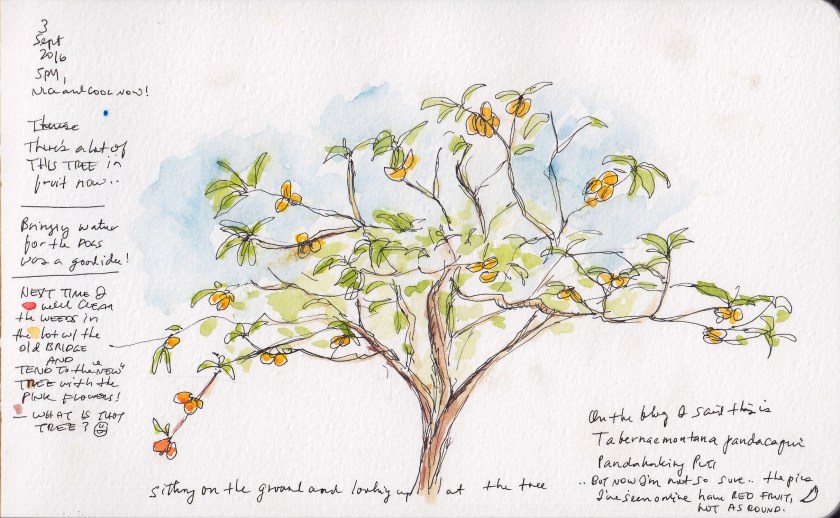 3
Sept
2016
5PM,
Nice and COOL NOW!
There's a lot of
THIS TREE in
fruit now..
Bringing water
for the DOGS
was a good idea!
NEXT TIME I
will CLEAN
the WEEDS in
the lot w/ the
old BRIDGE
AND
TEND to the "NEW"
TREE with the
PINK FLOWERS!
— WHAT IS THAT
TREE?
sitting on the ground and looking up at the tree
On the blog I said this is
Tabernaemontana pandacaqui
Pandakaking Puti
.. BUT NOW I'm not so sure.. the pics
I've seen online have RED FRUIT,
NOT AS ROUND.